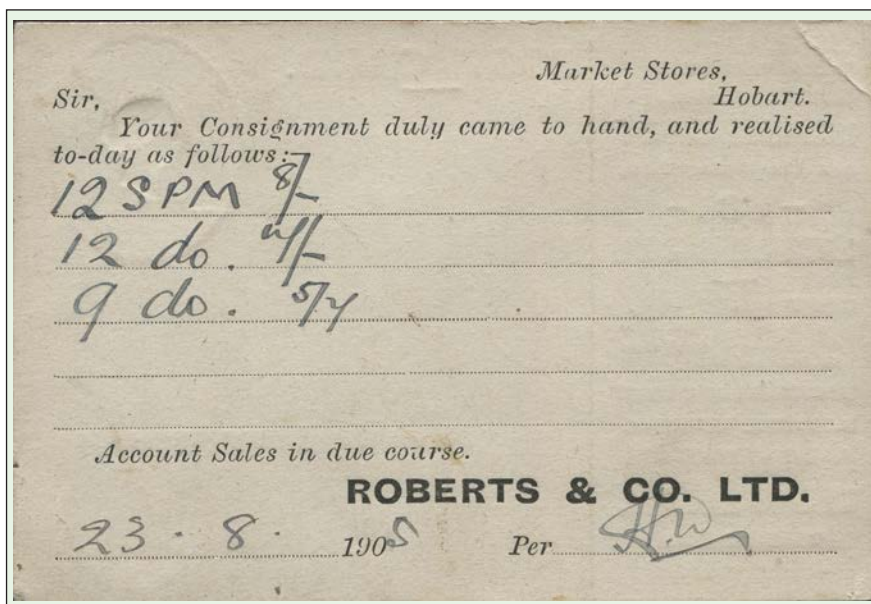 Market Stores,
Hobart.
Sir,
Your Consignment duly came to hand, and realised
to-day as follows:-
12 SPM 8/-
12 do.
9 do.
Account Sales in due course.
ROBERTS & CO. LTD.
23 · 8 · 190
Per H.W